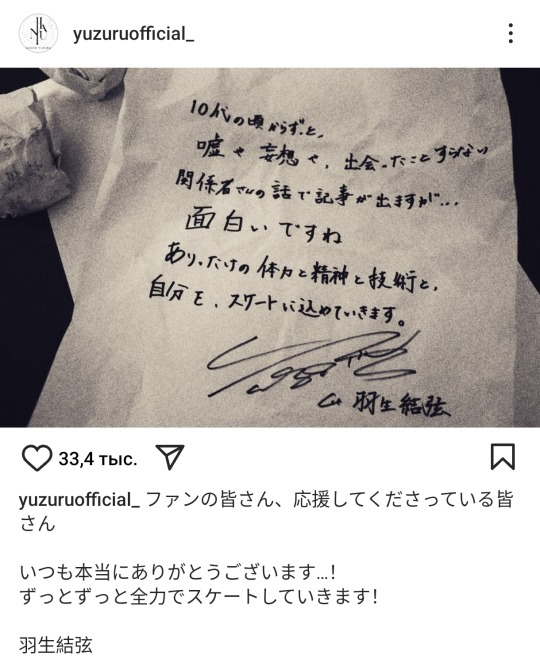 yuzuruofficial_
10代の頃からずっと、
嘘や妄想や、出会ったことすらない
関係者さんの話で記事が出ますが…
面白いですね
ありったけの体力と精神と技術と、
自分を、スケートに込めていきます。
羽生結弦
33,4 тыс.
yuzuruofficial_ ファンの皆さん、応援してくださっている皆
さん
いつも本当にありがとうございます…！
ずっとずっと全力でスケートしていきます！
羽生結弦